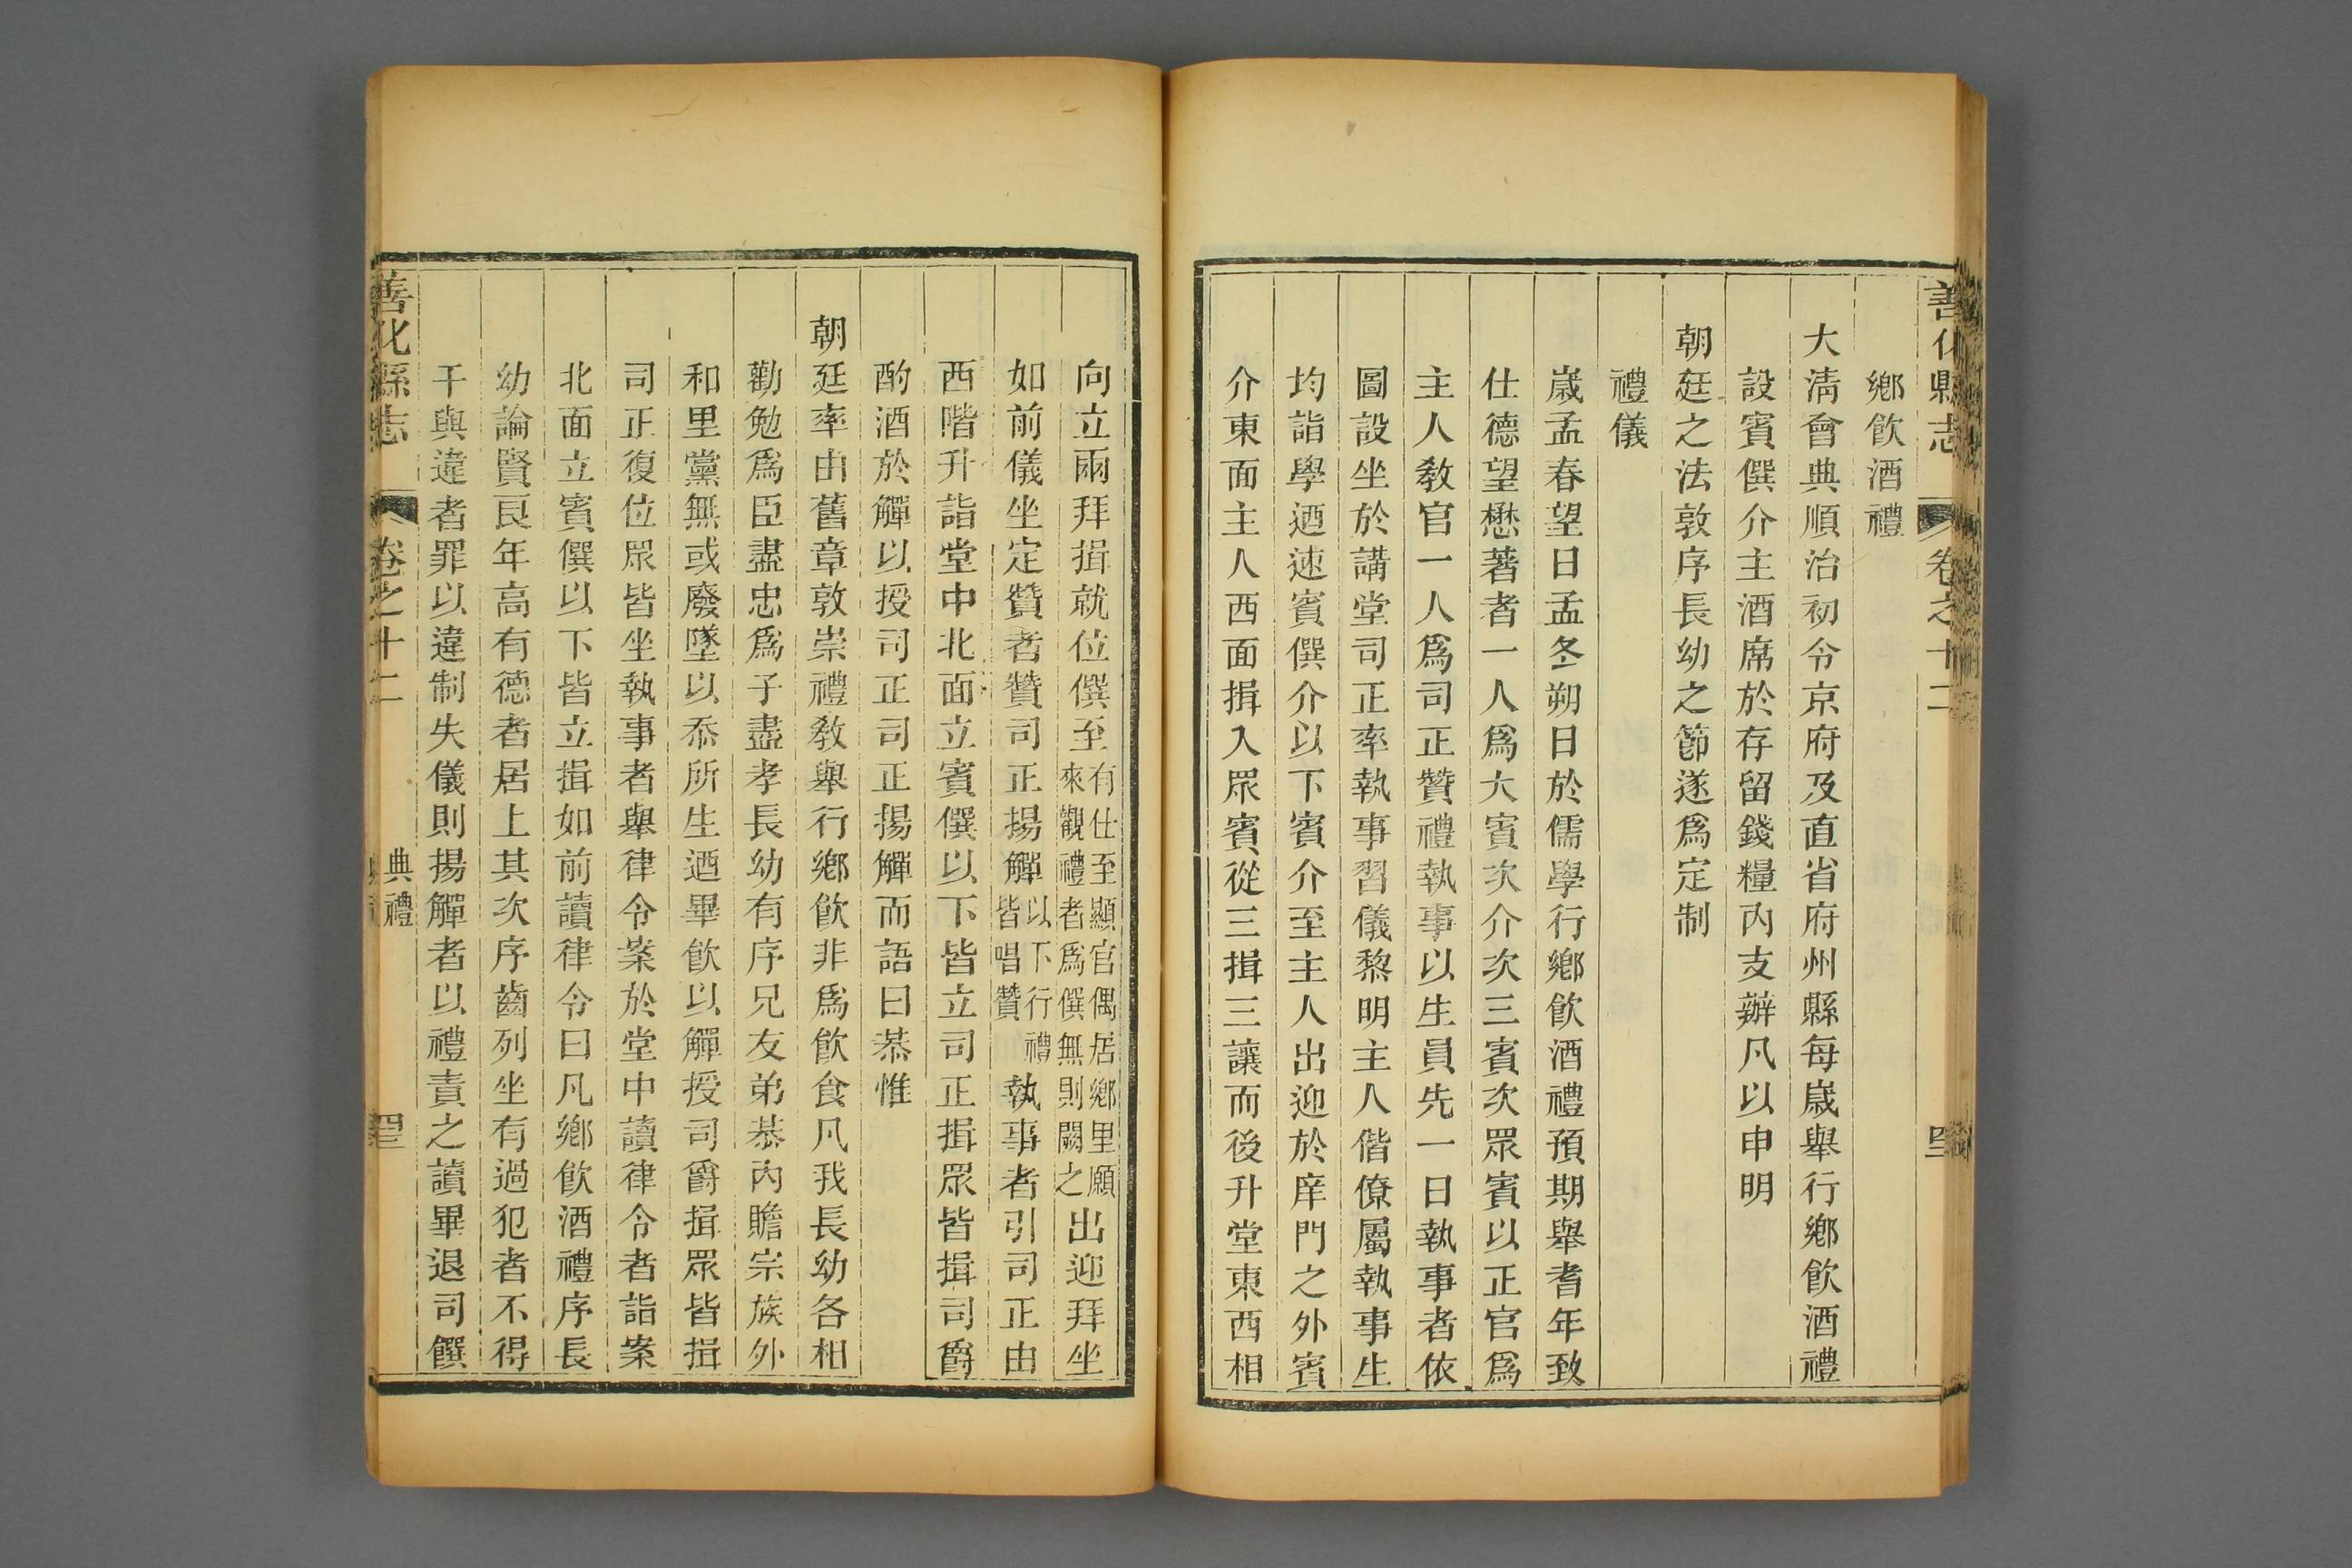 善化縣志 卷之十二
鄉飲酒禮
大淸會典順治初令京府及直省府州縣每歲舉行鄉飲酒禮
設賓僎介主酒席於存留錢糧內支辦凡以申明
朝廷之法敦序長幼之節遂爲定制
禮儀
歲孟春望日孟冬朔日於儒學行鄉飲酒禮預期舉耆年致
仕德望懋著者一人爲大賓次介次三賓次眾賓以正官爲
主人敎官一人爲司正贊禮執事以生員先一日執事者依
圖設坐於講堂司正率執事習儀黎明主人偕僚屬執事生
均詣學迺速賓僎介以下賓介至主人出迎於庠門之外賓
介東面主人西面揖入眾賓從三揖三讓而後升堂東西相
向立兩拜揖就位僎至有仕至顯官偶居鄉里願來觀禮者爲僎無則闕之出迎拜坐
如前儀坐定贊者贊司正揚觶以下行禮皆唱贊執事者引司正由
西階升詣堂中北面立賓僎以下皆立司正揖眾皆揖司爵
酌酒於觶以授司正司正揚觶而語曰恭惟
朝廷率由舊章敦崇禮敎舉行鄉飲非爲飲食凡我長幼各相
勸勉爲臣盡忠爲子盡孝長幼有序兄友弟恭內贍宗族外
和里黨無或廢墜以忝所生迺畢飲以觶授司爵揖眾皆揖
司正復位眾皆坐執事者舉律令案於堂中讀律令者詣案
北面立賓僎以下皆立揖如前讀律令曰凡鄉飲酒禮序長
幼論賢良年高有德者居上其次序齒列坐有過犯者不得
干與違者罪以違制失儀則揚觶者以禮責之讀畢退司饌
善化縣志 卷之十二 典禮